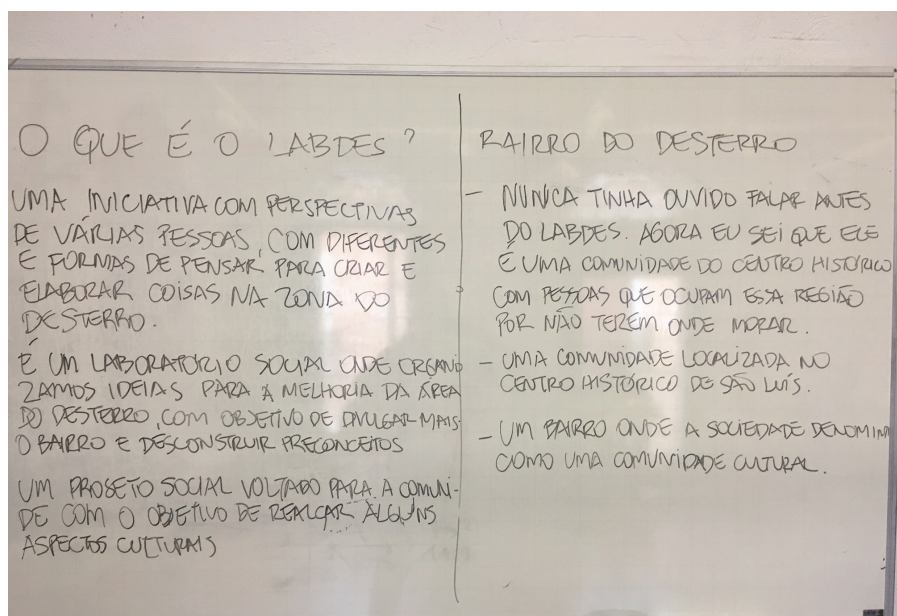 O QUE É O LABDES?
UMA INICIATIVA COM PERSPECTIVAS
DE VÁRIAS PESSOAS, COM DIFERENTES
E FORMAS DE PENSAR, PARA CRIAR E
ELABORAR COISAS NA ZONA DO
DESTERRO.
É UM LABORATÓRIO SOCIAL ONDE ORGANI
ZAMOS IDEIAS PARA A MELHORIA DA ÁREA
DO DESTERRO, COM OBJETIVO DE DIVULGAR MAIS
O BAIRRO E DESCONSTRUIR PRECONCEITOS
UM PROJETO SOCIAL VOLTADO PARA A COMUNI-
DE COM O OBJETIVO DE REALÇAR ALGUNS
ASPECTOS CULTURAIS
BAIRRO DO DESTERRO
- NUNCA TINHA OUVIDO FALAR ANTES
DO LABDES. AGORA EU SEI QUE ELE
É UMA COMUNIDADE DO CENTRO HISTÓRICO
COM PESSOAS QUE OCUPAM ESSA REGIÃO
POR NÃO TEREM ONDE MORAR.
- UMA COMUNIDADE LOCALIZADA NO
CENTRO HISTÓRICO DE SÃO LUÍS.
- UM BAIRRO ONDE A SOCIEDADE DENOMINA
COMO UMA COMUNIDADE CULTURAL.